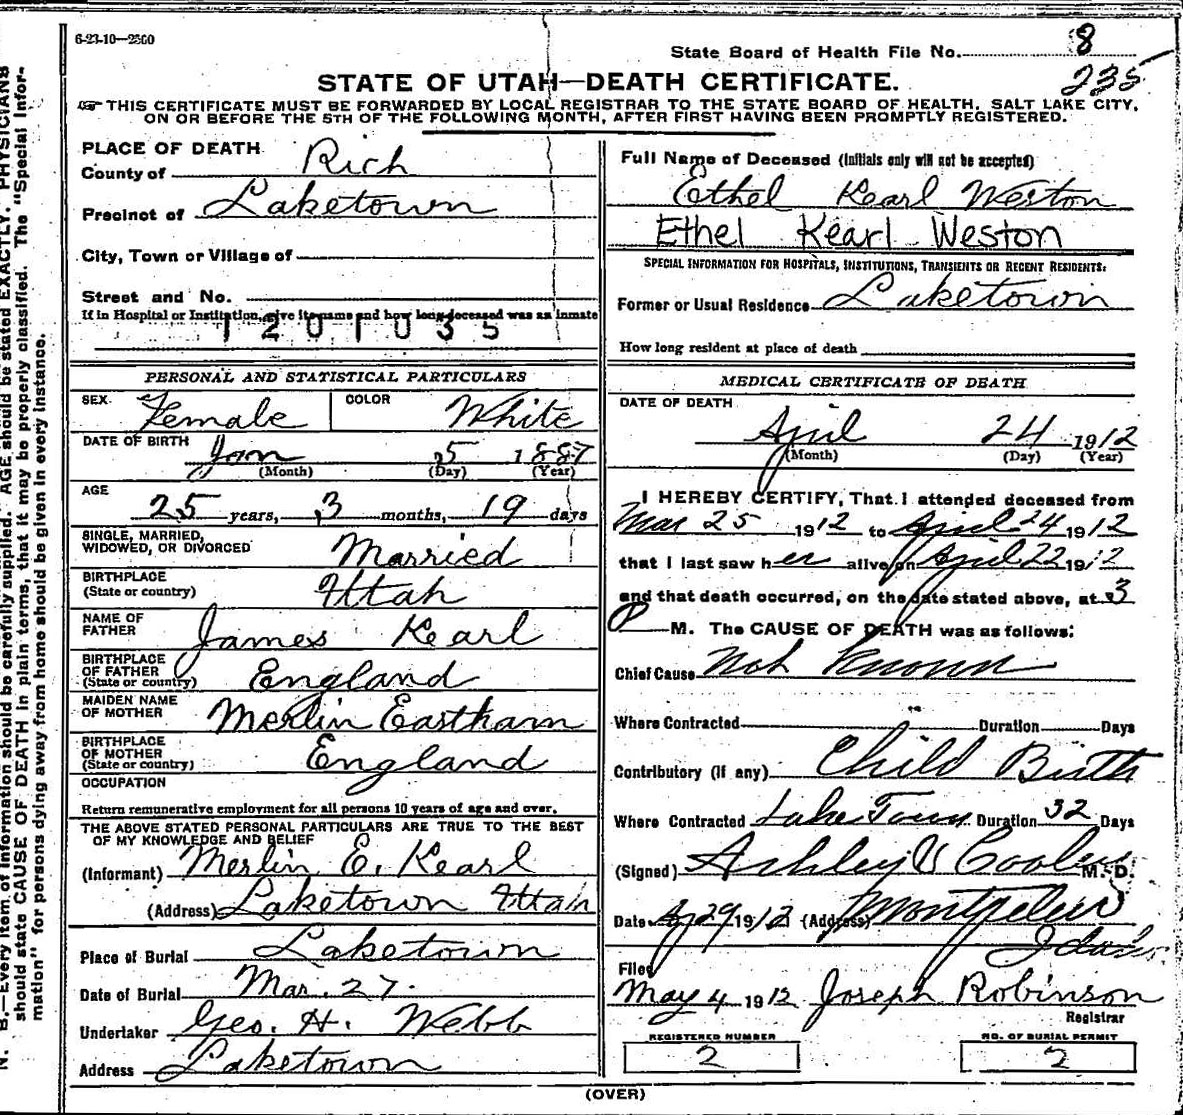 6-23-10—2500
State Board of Health File No. 8
235
STATE OF UTAH—DEATH CERTIFICATE.
THIS CERTIFICATE MUST BE FORWARDED BY LOCAL REGISTRAR TO THE STATE BOARD OF HEALTH, SALT LAKE CITY,
ON OR BEFORE THE 5TH OF THE FOLLOWING MONTH, AFTER FIRST HAVING BEEN PROMPTLY REGISTERED.
N. B.—Every item of information should be carefully supplied. AGE should be stated EXACTLY. PHYSICIANS
should state CAUSE OF DEATH in plain terms, that it may be properly classified. The "Special Infor-
mation" for persons dying away from home should be given in every instance.
PLACE OF DEATH
County of Rich
Precinct of Laketown
City, Town or Village of
Street and No.
If in Hospital or Institution, give its name and how long deceased was as inmate
1201035
PERSONAL AND STATISTICAL PARTICULARS
SEX Female COLOR White
DATE OF BIRTH Jan 5 1887
(Month) (Day) (Year)
AGE
25 years, 3 months, 19 days
SINGLE, MARRIED,
WIDOWED, OR DIVORCED Married
BIRTHPLACE
(State or country) Utah
NAME OF
FATHER James Kearl
BIRTHPLACE
OF FATHER
(State or country) England
MAIDEN NAME
OF MOTHER Merlin Eastham
BIRTHPLACE
OF MOTHER
(State or country) England
OCCUPATION
Return remunerative employment for all persons 10 years of age and over.
THE ABOVE STATED PERSONAL PARTICULARS ARE TRUE TO THE BEST
OF MY KNOWLEDGE AND BELIEF
(Informant) Merlin E. Kearl
(Address) Laketown Utah
Place of Burial Laketown
Date of Burial Mar. 27.
Undertaker Geo. H. Webb
Address Laketown
Full Name of Deceased (Initials only will not be accepted)
Ethel Kearl Weston
Ethel Kearl Weston
SPECIAL INFORMATION FOR HOSPITALS, INSTITUTIONS, TRANSIENTS OR RECENT RESIDENTS:
Former or Usual Residence Laketown
How long resident at place of death
MEDICAL CERTIFICATE OF DEATH
DATE OF DEARTH
April 24 1912
(Month) (Day) (Year)
I HEREBY CERTIFY, That I attended deceased from
Mar 25 1912 to April 24 1912
that I last saw her alive on April 22 1912
and that death occurred, on the date stated above, at 3
P M. The CAUSE OF DEATH was as follows:
Chief Cause Not Known
Where Contracted Duration Days
Contributory (if any) Child Birth
Where Contracted Lake Town Duration 32 Days
(Signed) Ashley M. D.
Date Ap 29 1912 (Address) Montpelier
Idaho
Filed
May 4 1912 Joseph Robinson
Registrar
REGISTERED NUMBER
2
NO. OF BURIAL PERMIT
2
(OVER)